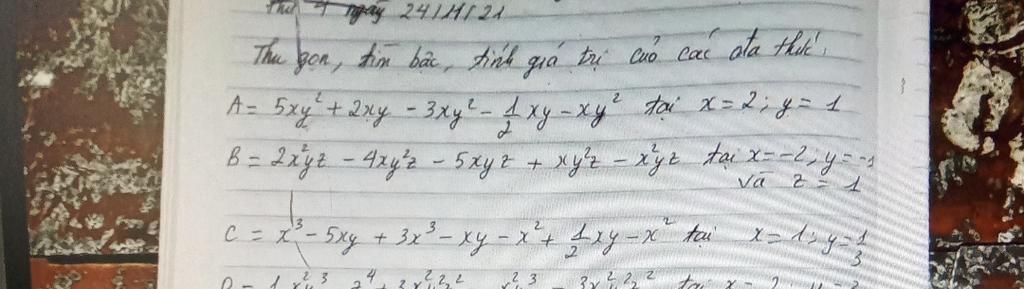 Thứ 4 ngày 24/11/21
Thu gọn, tìm bậc, tính giá trị của các đa thức.
A = 5xy² + 2xy - 3xy² - 1/2 xy - xy² tại x = 2; y = 1
B = 2x²yz - 4xy²z - 5xyz + xy²z - x²yz tại x = -2; y = -1
và z = 1
C = x³ - 5xy + 3x³ - xy - x² + 1/2 xy - x² tại x = 1; y = 1/3